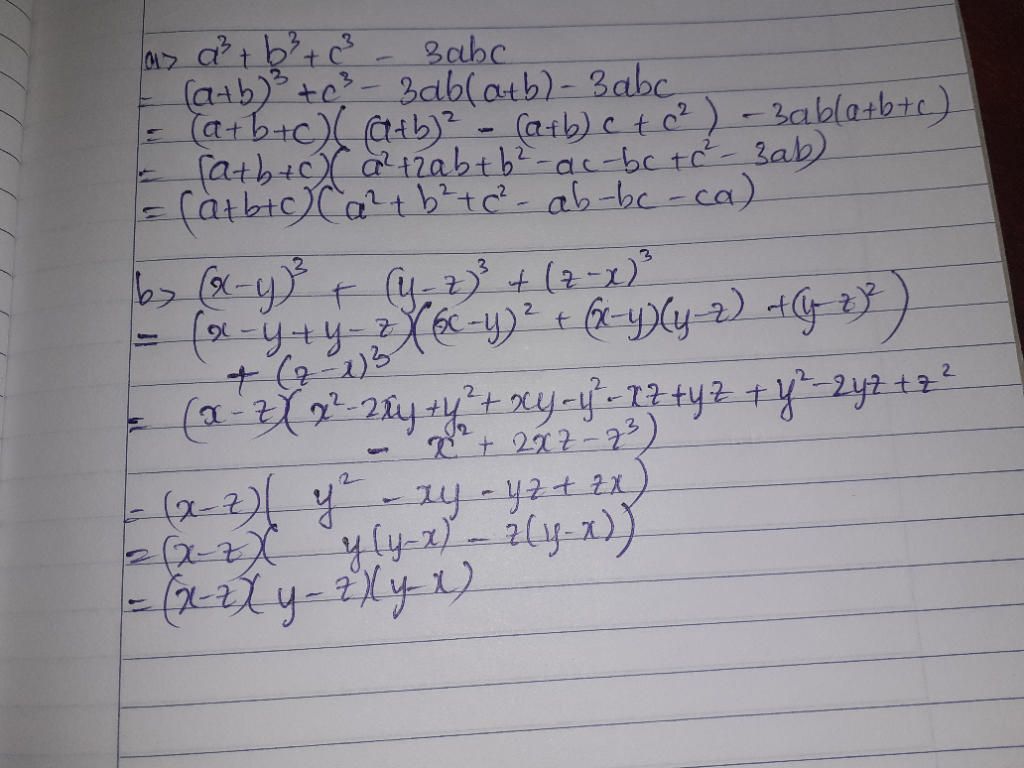 a> a³ + b³ + c³ - 3abc
= (a+b)³ + c³ - 3ab(a+b) - 3abc
= (a+b+c)( (a+b)² - (a+b)c + c² ) - 3ab(a+b+c)
= (a+b+c)( a²+2ab+b²-ac-bc+c²-3ab)
= (a+b+c)(a²+b²+c²-ab-bc-ca)
b> (x-y)³ + (y-z)³ + (z-x)³
= (x-y+y-z)((x-y)² + (x-y)(y-z) + (y-z)²)
+ (z-x)³
= (x-z)( x²-2xy+y²+xy-y²-xz+yz+y²-2yz+z²
- x² + 2xz - z³)
= (x-z)( y² - xy - yz + zx)
= (x-z)( y(y-x) - z(y-x))
= (x-z)(y-z)(y-x)